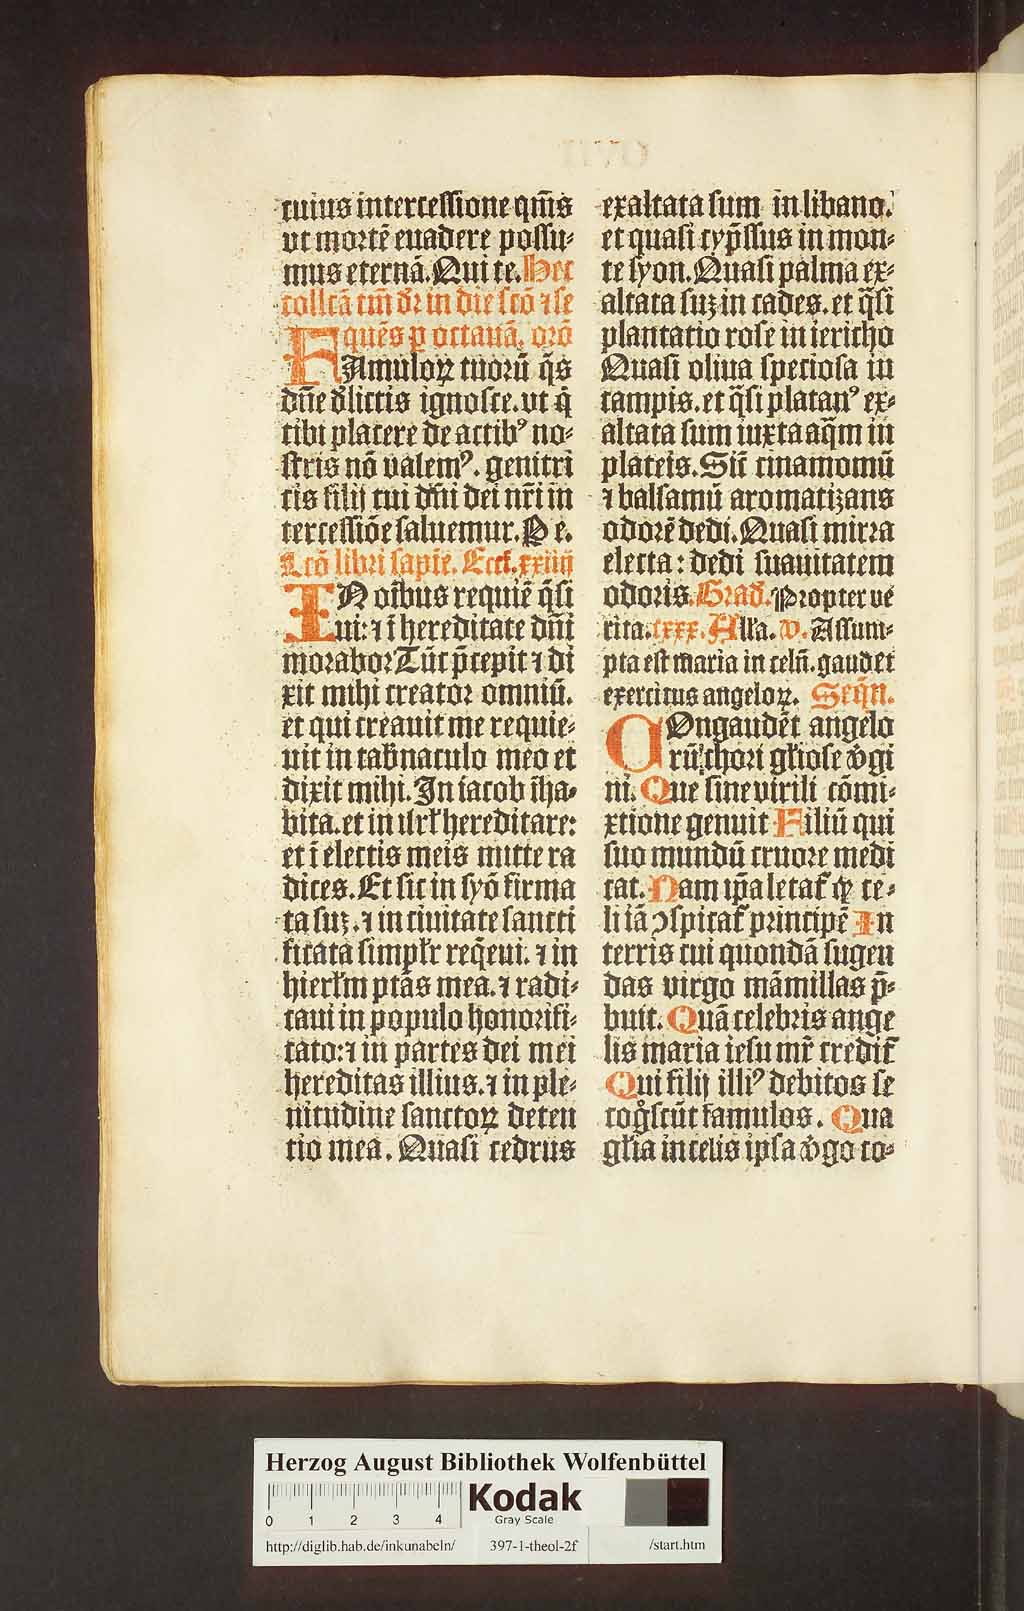 cuius intercessione qm̄s
vt mortē euadere possu⸗
mus eternā. Qui te. Hec
collcā tm̄ dr in die scō ⁊ se
quēs ꝑ octauā. orō
FAmuloꝝ tuorū q̄s
dn̄e dl̓ictis ignosce. vt q̄
tibi placere de actibꝰ no⸗
stris nō valemꝰ. genitri
cis filij tui dn̄i dei nr̄i in
tercessiōe saluemur. Pe.
Lcō libri sapiē. Eccl. xxiiij
IN oībus requiē q̄si
ui: ⁊ ī hereditate dn̄i
morabor Tūc p̄cepit ⁊ di
xit mihi creator omniū.
et qui creauit me requie⸗
uit in tab̄naculo meo et
dixit mihi. In iacob īha⸗
bita. et in isrl̄ hereditare:
et ī electis meis mitte ra
dices. Et sic in syō firma
ta suꝫ. ⁊ in ciuitate sancti
ficata simplr̄ req̄eui. ⁊ in
hierl̄m ptās mea. ⁊ radi⸗
caui in populo honorifi⸗
cato: ⁊ in partes dei mei
hereditas illius. ⁊ in ple⸗
nitudine sanctoꝝ deten
tio mea. Quasi cedrus
exaltata sum in libano.
et quasi cyp̄ssus in mon⸗
te syon. Quasi palma ex⸗
altata suꝫ in cades. et q̄si
plantatio rose in iericho
Quasi oliua speciosa in
campis. et q̄si platanꝰ ex⸗
altata sum iuxta aq̄m in
plateis. Sic̄ cinamomū
⁊ balsamū aromatizans
odorē dedi. Quasi mirra
electa: dedi suauitatem
odoris. Grad̄. Propter ve
rita. cxxx. All̄a. v̄. Assum⸗
pta est maria in celū. gaudet
exercitus angeloꝝ. Seq̄n.
COngaudēt angelo
rū chori gl̄iose v̄gi
ni. Que sine virili cōmi⸗
xtione genuit Filiū qui
suo mundū cruore medi
cat. Nam ip̄a letat̄ ꝙ ce⸗
li iā ꝯspicat̄ principē In
terris cui quondā sugen
das virgo māmillas p̄⸗
buit. Quā celebris ange
lis maria iesu mr̄ credit̄
Qui filij illiꝰ debitos se
cog̊scūt famulos. Qua
gl̄ia in celis ipsa v̄go co⸗
Herzog August Bibliothek Wolfenbüttel
0 1 2 3 4
Kodak
Gray Scale
http://diglib.hab.de/inkunabeln/ 397-1-theol-2f /start.htm